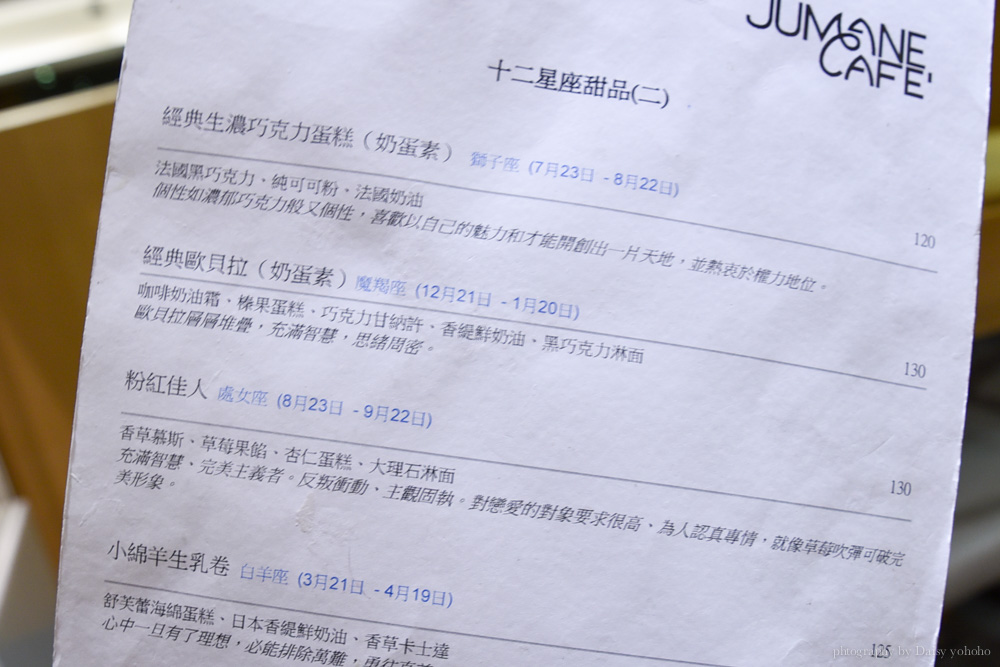 JUMANE
CAFE'
十二星座甜品(二)
經典生濃巧克力蛋糕（奶蛋素） 獅子座 (7月23日 - 8月22日)
法國黑巧克力、純可可粉、法國奶油 120
個性如濃郁巧克力般又個性，喜歡以自己的魅力和才能開創出一片天地，並熱衷於權力地位。
經典歐貝拉（奶蛋素） 魔羯座 (12月21日 - 1月20日)
咖啡奶油霜、榛果蛋糕、巧克力甘納許、香緹鮮奶油、黑巧克力淋面 130
歐貝拉層層堆疊，充滿智慧，思緒周密。
粉紅佳人 處女座 (8月23日 - 9月22日)
香草慕斯、草莓果餡、杏仁蛋糕、大理石淋面 130
充滿智慧、完美主義者。反叛衝動、主觀固執。對戀愛的對象要求很高、為人認真專情，就像草莓吹彈可破完
美形象。
小綿羊生乳卷 白羊座 (3月21日 - 4月19日)
舒芙蕾海綿蛋糕、日本香緹鮮奶油、香草卡士達 125
心中一旦有了理想，必能排除萬難，
photography by Daisy yohoho